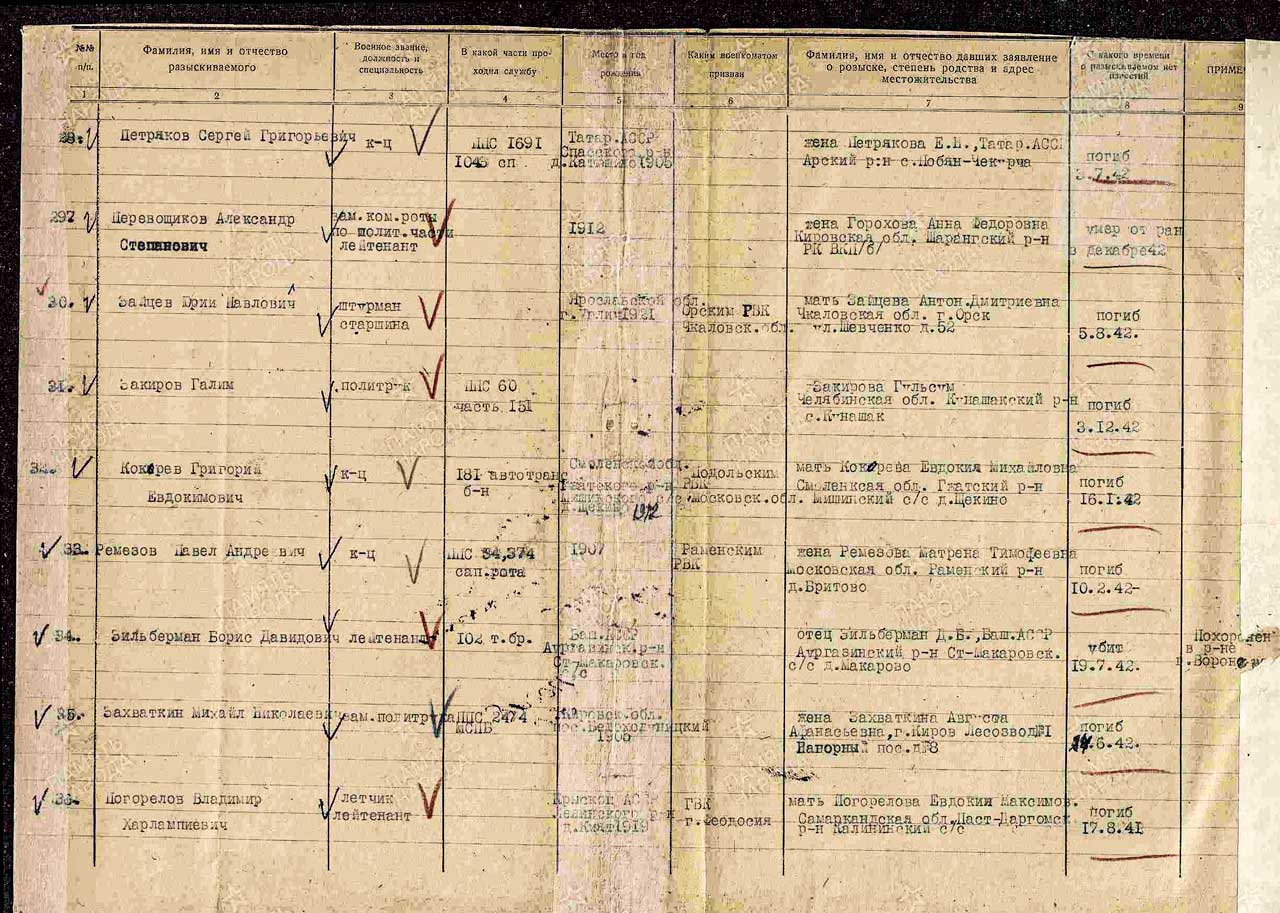 №№ п/п.
Фамилия, имя и отчество разыскиваемого
Военное звание, должность и специальность
В какой части проходил службу
Место и год рождения
Каким военкоматом призван
Фамилия, имя и отчество давших заявление о розыске, степень родства и адрес местожительства
С какого времени о разыскиваемом нет известий
ПРИМЕ
1 2 3 4 5 6 7 8 9
Петряков Сергей Григорьевич к-ц ППС 1691 Татар.АССР жена Петрякова Е.Н.,Татар.АССР
1045 сп Спасского р-н Арский р:н с.Лобян-Чекурча погиб
1905 3.7.42
297 Перевощиков Александр зам.ком.роты жена Горохова Анна Федоровна умер от ран
Степанович по полит.части 1912 Кировская обл. Шарангский р-н в декабре42
лейтенант РК ВКП/б/
30. Зайцев Юрий Павлович штурман Ярославской обл. Орским РВК мать Зайцева Антон.Дмитриевна
старшина г.Углич1921 Чкаловск.обл. Чкаловская обл. г.Орск погиб
ул.Шевченко д.52 5.8.42.
31. Закиров Галим политрук ППС 60 Закирова Гульсум
часть 151 Челябинская обл. Кунашакский р-н погиб
с.Кунашак 3.12.42
32. Кокорев Григорий к-ц 181 автотранс Смоленской обл. Подольским мать Кокорева Евдокия Михайловна
Евдокимович б-н Гжатского р-н РВК Смоленксая обл. Гжатский р-н погиб
Мишинского с/с Московск.обл. Мишинский с/с д.Щекино 16.1:42
д.Щекино 1912
33. Ремезов Павел Андреевич к-ц ППС 34,374 1907 Раменским жена Ремезова Матрена Тимофеевна
сап.рота РВК Московская обл. Раменский р-н погиб
д.Бритово 10.2.42-
34. Зильберман Борис Давидович лейтенант 102 т.бр. Баш.АССР отец Зильберман Д.Б.,Баш.АССР Похоронен
Аургазинск.р-н Аургазинский р-н Ст-Макаровск. убит в р-не
Ст-Макаровск. с/с д.Макарово 19.7.42.
с/с
35. Захваткин Михаил Николаевич зам.политрука ППС 2474 Кировск.обл. жена Захваткина Августа
МСПБ пос.Белохолуницкий Афанасьевна,г.Киров Лесозвод№1 погиб
Напорный пос.д№8 14.6.42.
36. Погорелов Владимир летчик Крыской АССР ГВК мать Погорелова Евдокия Максимов.
Харлампиевич лейтенант Ленинского р-н г.Феодосия Самаркандская обл.Паст-Даргомск. погиб
1919 р-н Калининский с/с 17.8.41